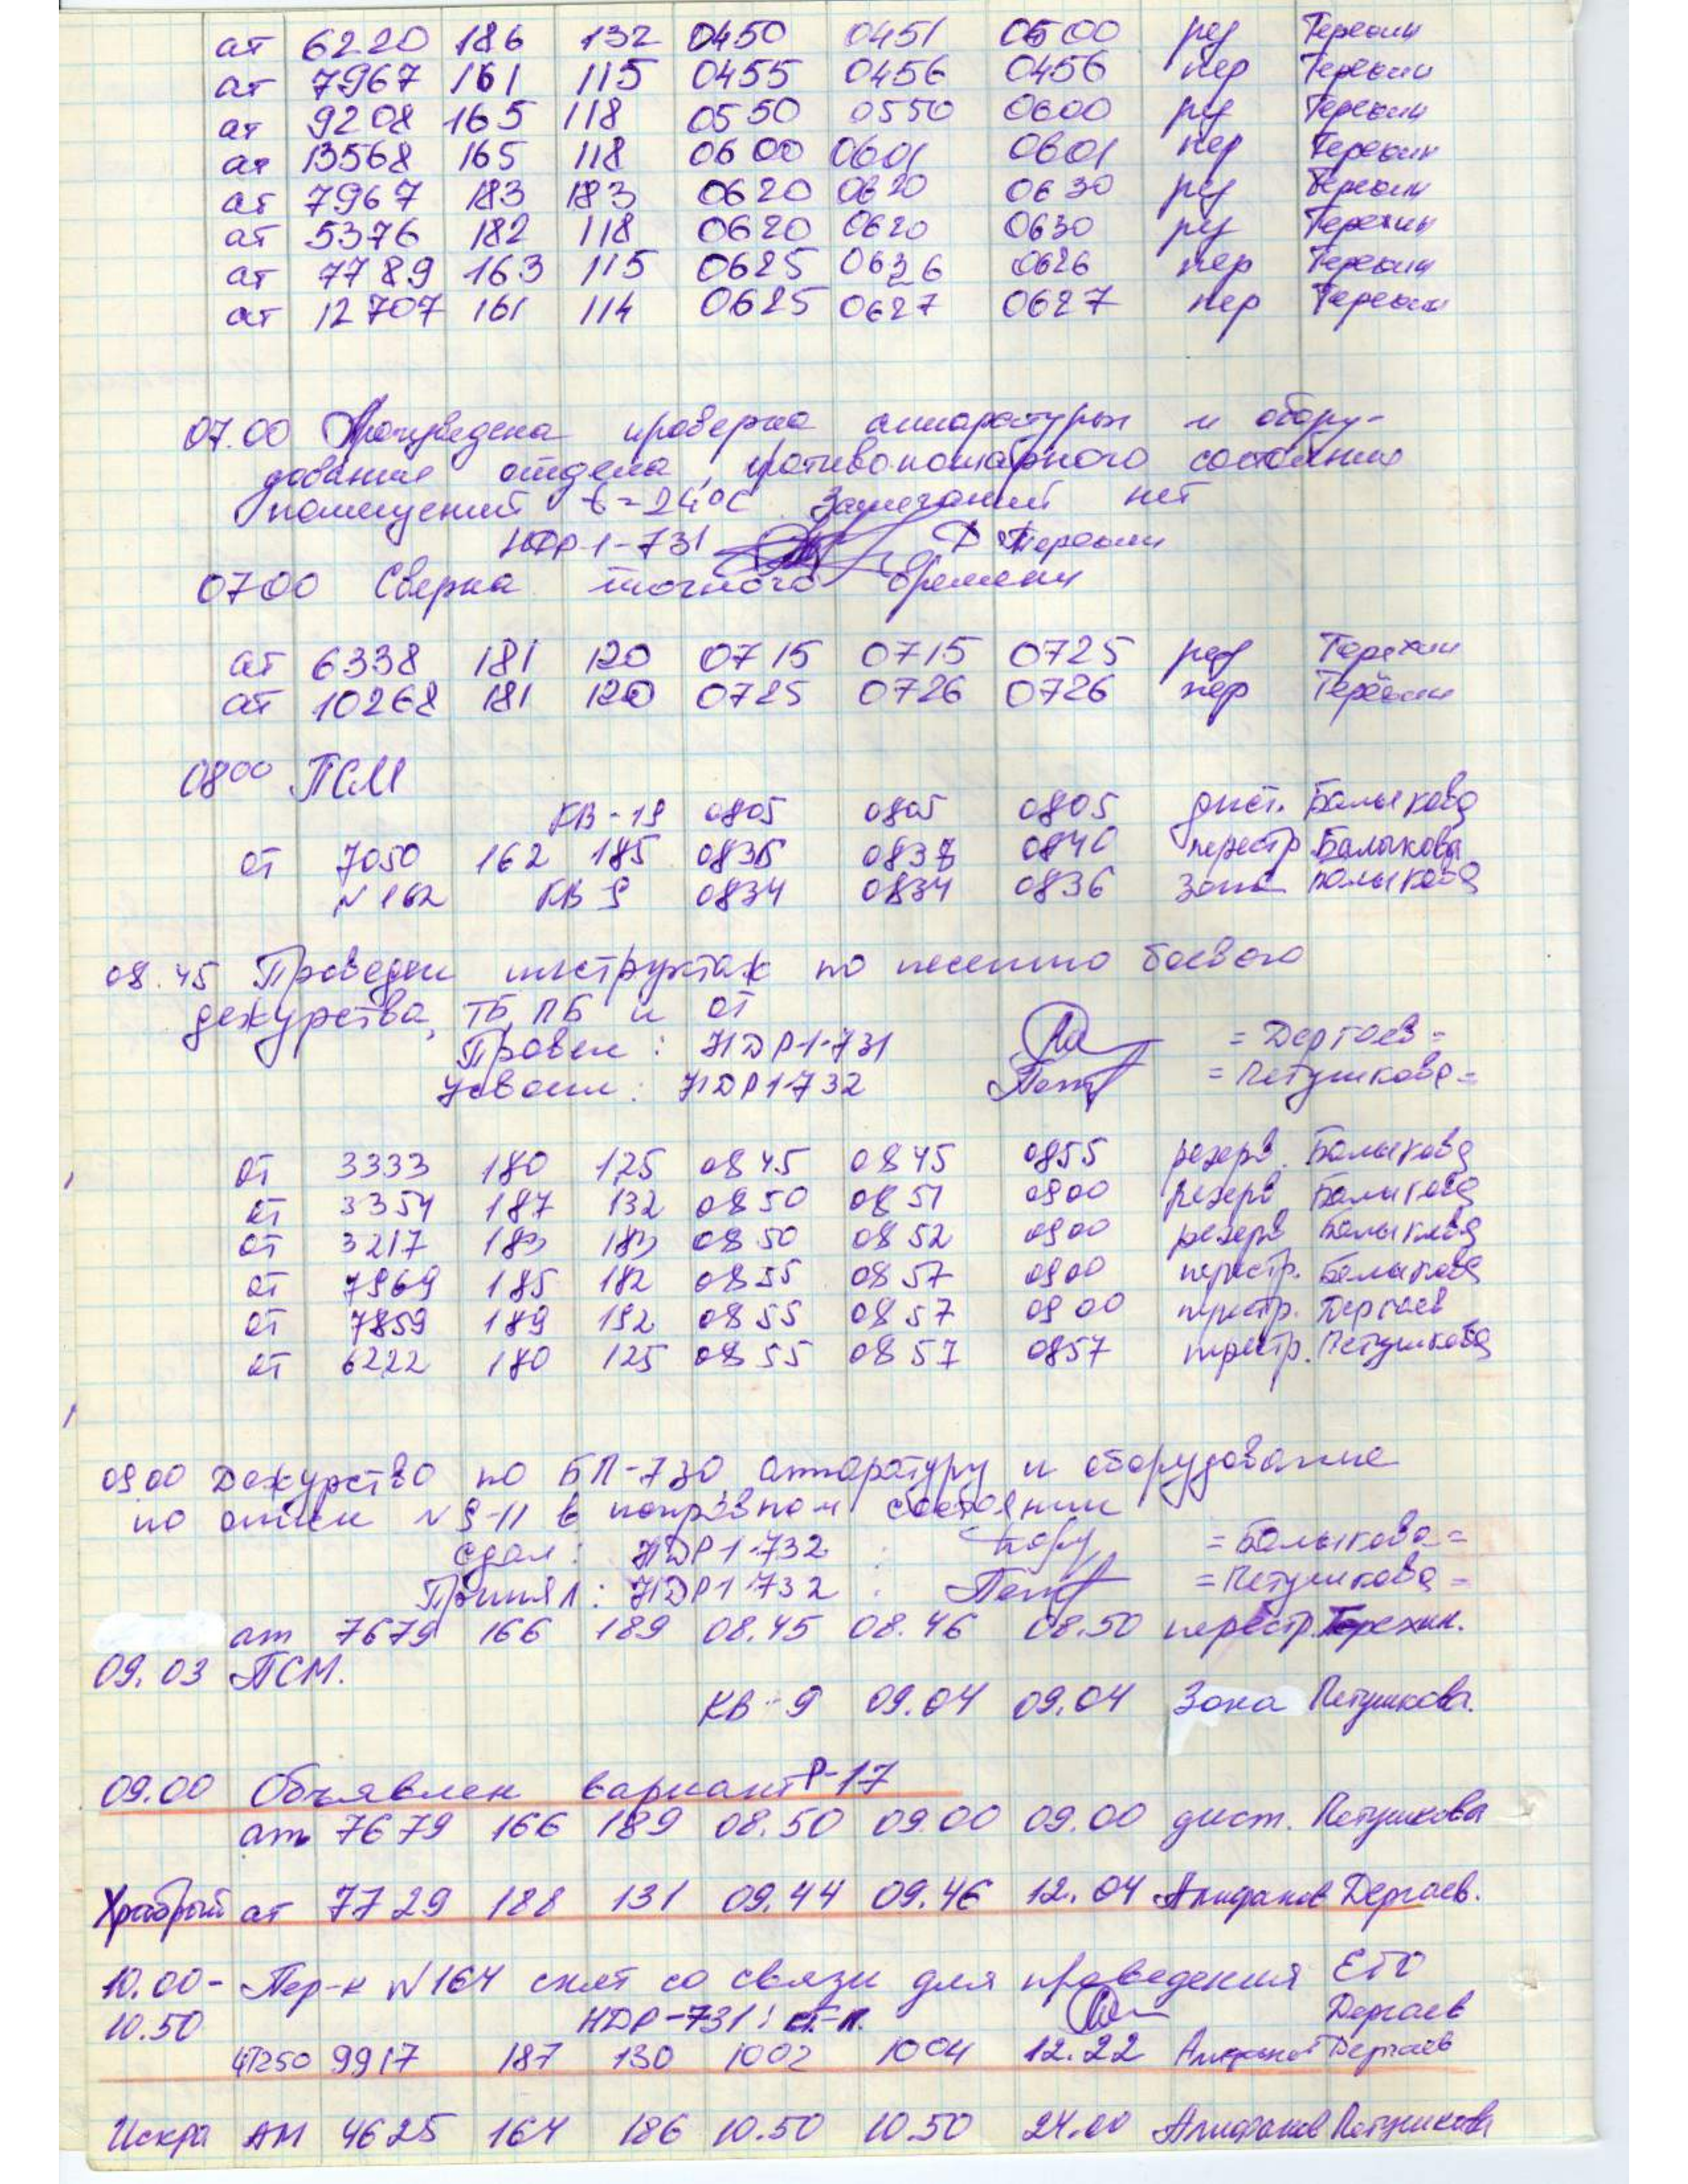 ат 6220 186 132 0450 0451 0500 рез Терехин
ат 7967 161 115 0455 0456 0456 пер Терехин
ат 9208 165 118 0550 0550 0600 рез Терехин
ат 13568 165 118 0600 0601 0601 пер Терехин
ат 7967 183 183 0620 0620 0630 рез Терехин
ат 5376 182 118 0620 0620 0630 рез Терехин
ат 7789 163 115 0625 0626 0626 пер Терехин
ат 12707 161 114 0625 0627 0627 пер Терехин
07.00 Произведена проверка аппаратуры и обору-
дования отдела, противопожарного состояния
помещений t=24°С Замечаний нет
НДР-1-731 Терехин
0700 Сверка точного времени
ат 6338 181 120 0715 0715 0725 рез Терехин
ат 10268 181 120 0725 0726 0726 пер Терехин
0800 ПСМ
КВ-19 0805 0805 0805 дист. Балыкова
ат 7050 162 185 0836 0838 0840 перестр. Балыкова
N 162 КВ 9 0834 0834 0836 Зона Балыкова
08.45 Проведен инструктаж по несению боевого
дежурства, ТБ, ПБ и от
Провел: НДР1-731 =Дергаев=
Усвоил: НДР1-732 =Петушкова=
ат 3333 180 125 0845 0845 0855 резерв. Балыкова
ат 3354 187 132 0850 0851 0900 резерв Балыкова
ат 3217 183 183 0850 0852 0900 резерв Балыкова
ат 7969 185 182 0855 0857 0900 перестр. Балыкова
ат 7859 189 192 0855 0857 0900 перестр. Дергаев
ат 6222 180 125 0855 0857 0857 перестр. Петушкова
0900 Дежурство по БП-730, аппаратуру и оборудование
по описи N 9-11 в исправном состоянии
Сдал: НДР1-732 =Балыкова=
Принял: НДР1-732 =Петушкова=
ат 7679 166 189 08.45 08.46 08.50 перестр. Терехин.
09.03 ПСМ.
КВ-9 09.04 09.04 Зона Петушкова.
09.00 Объявлен вариант Р-17
ат 7679 166 189 08.50 09.00 09.00 дист. Петушкова
Храбрый ат 7729 188 131 09.44 09.46 12.04 Алифанов Дергаев.
10.00- Пер-к N164 снят со связи для проведения ЕТО
10.50 НДР-731: ст. л. Дергаев
41250 9917 187 130 1002 1004 12.22 Алифанов Дергаев
Искра АМ 4625 164 186 10.50 10.50 24.00 Алифанов Петушкова